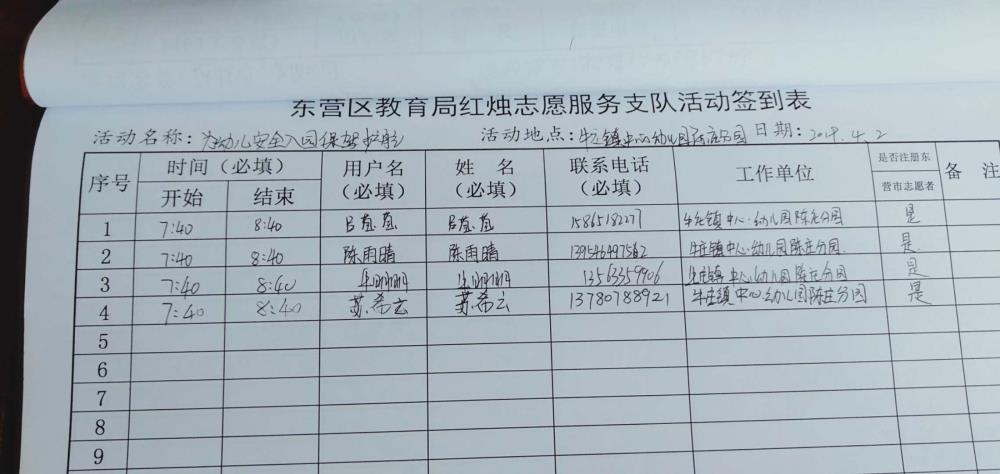 东营区教育局红烛志愿服务支队活动签到表
活动名称：为幼儿安全入园保驾护航 活动地点：牛庄镇中心幼儿园陈庄分园 日期：2019.4.2
序号 时间（必填） 用户名（必填） 姓 名（必填） 联系电话（必填） 工作单位 是否注册东营市志愿者 备 注
开始 结束
1 7:40 8:40 吕莹莹 吕莹莹 15865182277 牛庄镇中心幼儿园陈庄分园 是
2 7:40 8:40 陈雨晴 陈雨晴 139546497562 牛庄镇中心幼儿园陈庄分园 是
3 7:40 8:40 13563559906 牛庄镇中心幼儿园陈庄分园 是
4 7:40 8:40 苏希云 苏希云 13780788921 牛庄镇中心幼儿园陈庄分园 是
5
6
7
8
9